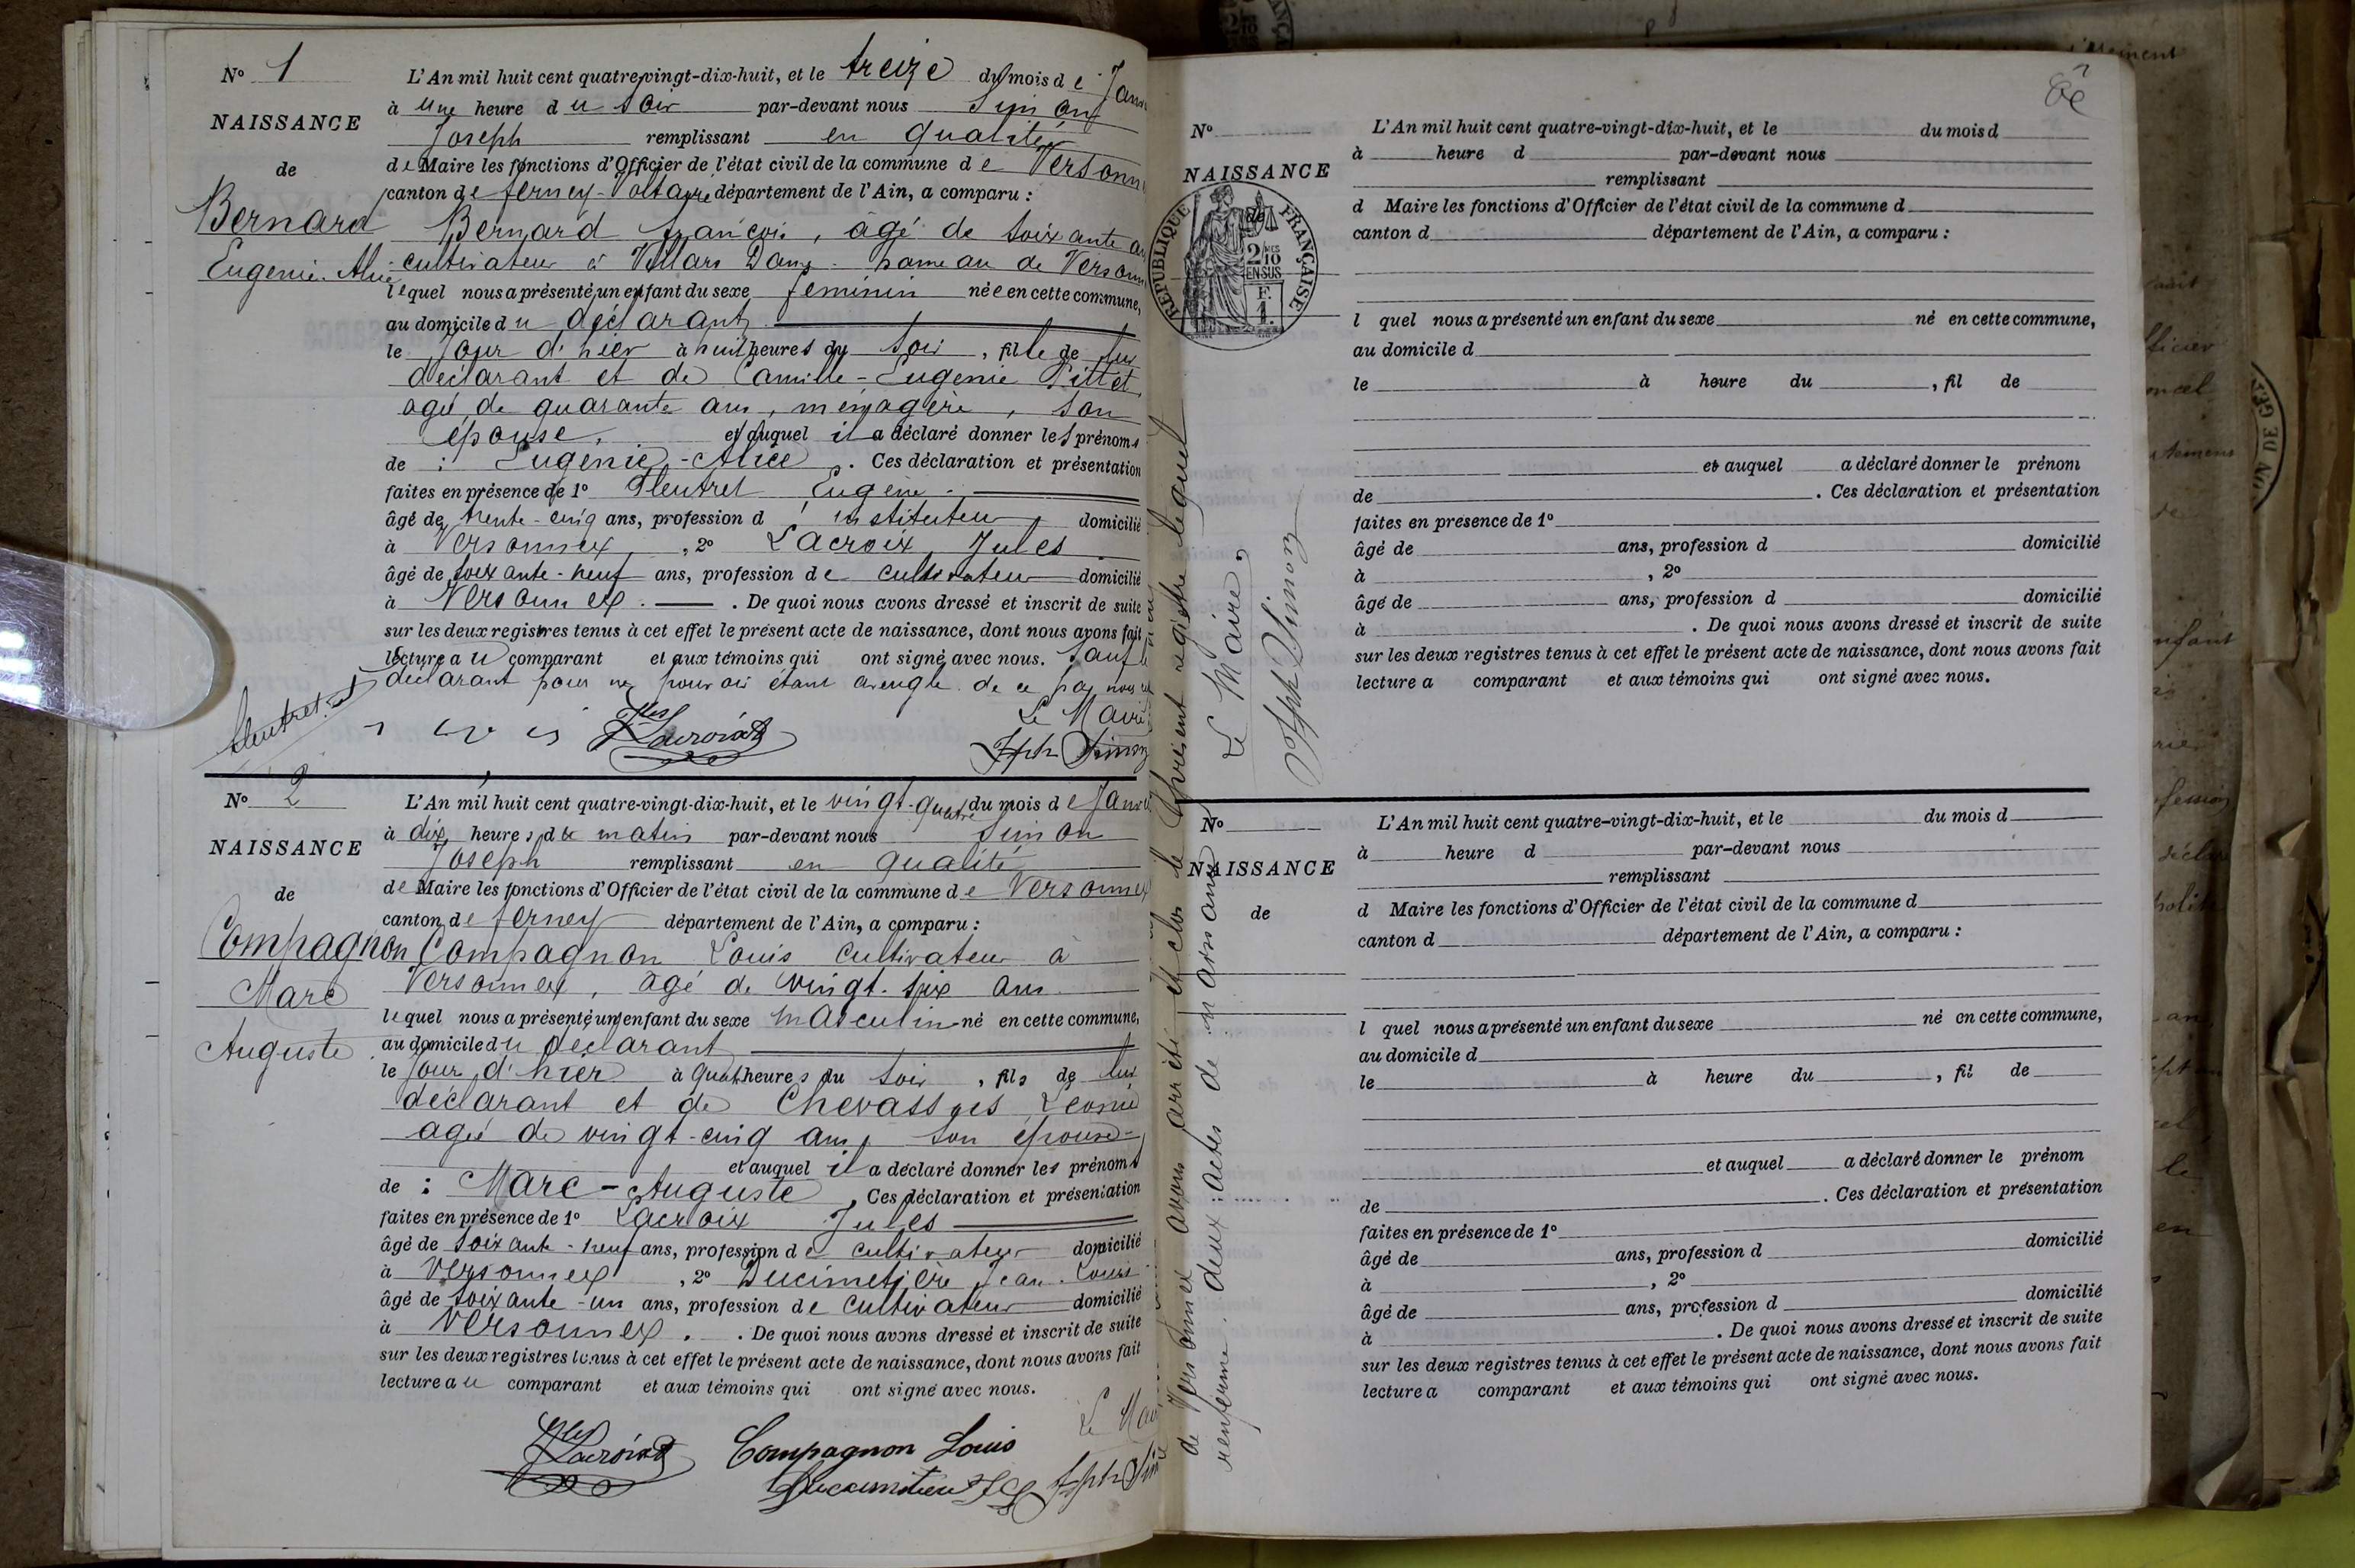 N° 1
NAISSANCE
de
Bernard
Eugénie-Alice
L'An mil huit cent quatre-vingt-dix-huit, et le treize du mois de Janv
à une heure du soir par-devant nous Simon
Joseph remplissant en qualité
de Maire les fonctions d'Officier de l'état civil de la commune de Versonn
canton de ferney-Voltaire département de l'Ain, a comparu :
Bernard françois, âgé de soixante
cultivateur à Villars Dame hameau de Versonn
lequel nous a présenté un enfant du sexe feminin née en cette commune,
au domicile du déclarant
le jour d'hier à huit heures du soir, fille de lui
déclarant et de Camille-Eugénie Pittet
agé de quarante ans, ménagère, son
épouse, et auquel il a déclaré donner les prénoms
de : Eugénie-Alice. Ces déclaration et présentation
faites en présence de 1° Fleutret Eugène
âgé de trente-cinq ans, profession d'instituteur domicilié
à Versonnex, 2° Lacroix Jules
âgé de soixante-neuf ans, profession de cultivateur domicilié
à Versonnex. De quoi nous avons dressé et inscrit de suite
sur les deux registres tenus à cet effet le présent acte de naissance, dont nous avons fait
lecture au comparant et aux témoins qui ont signé avec nous. Sauf le
déclarant pour ne pouvoir étant aveugle. de ce
Le Maire
Fleutret Jles Lacroix Jsph Simon
N° 2
NAISSANCE
de
Compagnon
Marc
Auguste
L'An mil huit cent quatre-vingt-dix-huit, et le vingt-quatre du mois de Janv
à dix heures du matin par-devant nous Simon
Joseph remplissant en qualité
de Maire les fonctions d'Officier de l'état civil de la commune de Versonnex
canton de ferney département de l'Ain, a comparu :
Compagnon Louis cultivateur à
Versonnex, âgé de vingt-six ans
lequel nous a présenté un enfant du sexe masculin né en cette commune,
au domicile du déclarant
le jour d'hier à quatre heures du soir, fils de lui
déclarant et de Chevassus Léonie
agée de vingt-cinq ans, son épouse
et auquel il a déclaré donner les prénoms
de : Marc-Auguste, Ces déclaration et présentation
faites en présence de 1° Lacroix Jules
âgé de soixante-neuf ans, profession de cultivateur domicilié
à Versonnex, 2° Ducimetière Jean-Louis
âgé de soixante-un ans, profession de cultivateur domicilié
à Versonnex. De quoi nous avons dressé et inscrit de suite
sur les deux registres tenus à cet effet le présent acte de naissance, dont nous avons fait
lecture au comparant et aux témoins qui ont signé avec nous.
Le Mai
Jles Lacroix Compagnon Louis
Jsph Sim
de Versonnex avons arrêté et clos le présent registre lequel
renferme deux actes de naissance
Le Maire,
Jsph Simon
N°
NAISSANCE
de
RÉPUBLIQUE FRANÇAISE
2/10 EN SUS
F. 1.
L'An mil huit cent quatre-vingt-dix-huit, et le du mois d
à heure d par-devant nous
remplissant
d Maire les fonctions d'Officier de l'état civil de la commune d
canton d département de l'Ain, a comparu :
l quel nous a présenté un enfant du sexe né en cette commune,
au domicile d
le à heure du , fil de
et auquel a déclaré donner le prénom
de . Ces déclaration et présentation
faites en présence de 1°
âgé de ans, profession d domicilié
à , 2°
âgé de ans, profession d domicilié
à . De quoi nous avons dressé et inscrit de suite
sur les deux registres tenus à cet effet le présent acte de naissance, dont nous avons fait
lecture a comparant et aux témoins qui ont signé avec nous.
N°
NAISSANCE
de
L'An mil huit cent quatre-vingt-dix-huit, et le du mois d
à heure d par-devant nous
remplissant
d Maire les fonctions d'Officier de l'état civil de la commune d
canton d département de l'Ain, a comparu :
l quel nous a présenté un enfant du sexe né en cette commune,
au domicile d
le à heure du , fil de
et auquel a déclaré donner le prénom
de . Ces déclaration et présentation
faites en présence de 1°
âgé de ans, profession d domicilié
à , 2°
âgé de ans, profession d domicilié
à . De quoi nous avons dressé et inscrit de suite
sur les deux registres tenus à cet effet le présent acte de naissance, dont nous avons fait
lecture a comparant et aux témoins qui ont signé avec nous.